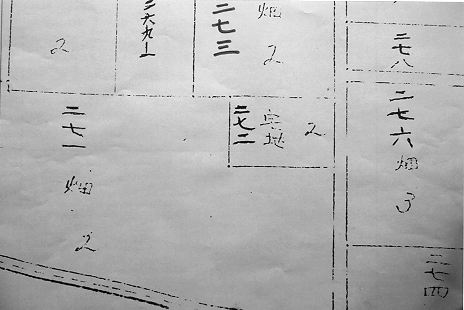 二七八
二七六
畑
3
二七四
畑
2
二七三
二六九ノ一
2
2
二七二
二七一
畑
2